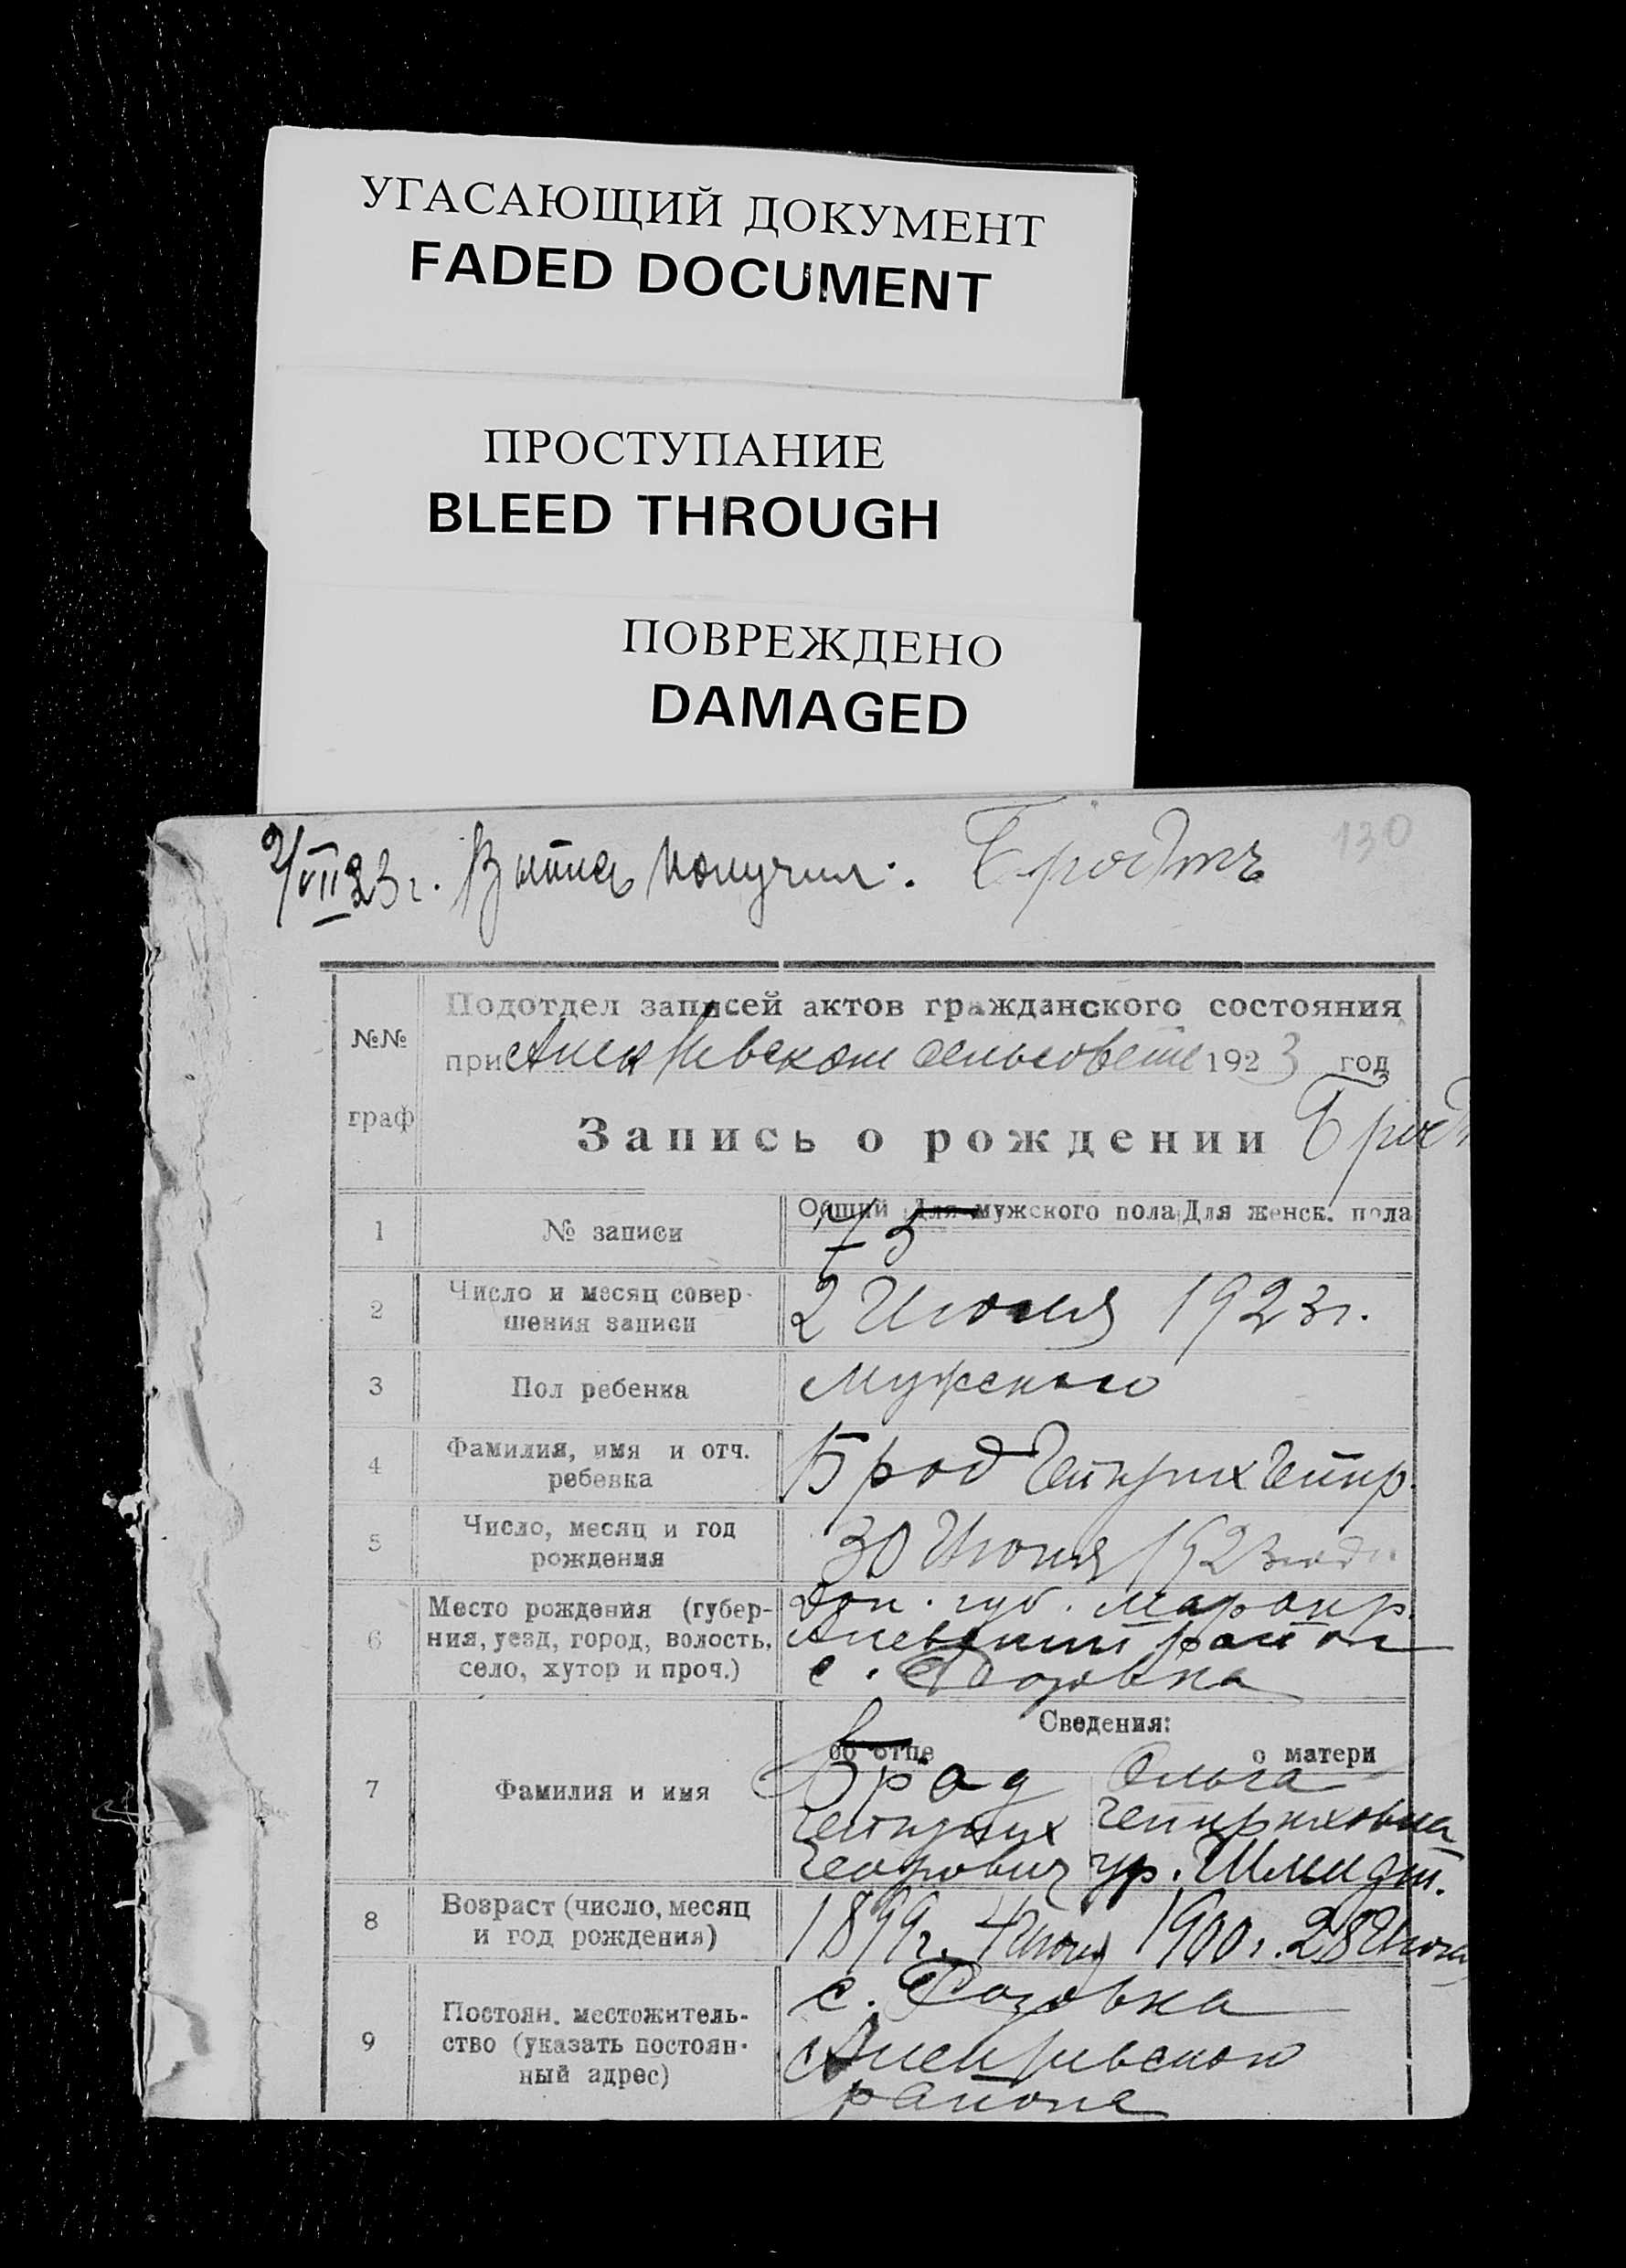 УГАСАЮЩИЙ ДОКУМЕНТ
FADED DOCUMENT
ПРОСТУПАНИЕ
BLEED THROUGH
ПОВРЕЖДЕНО
DAMAGED
130
2/VII 23 г. получил:
№№
граф
Подотдел записей актов гражданского состояния
при сельсовете 1923 год
Запись о рождении
1
№ записи
Общий Для мужского пола Для женск. пола
73
2
Число и месяц совер-
шения записи
2 Июля 1923 г.
3
Пол ребенка
Мужского
4
Фамилия, имя и отч.
ребенка
Брод Гейнрих Гейнр.
5
Число, месяц и год
рождения
30 Июня 1923 года
6
Место рождения (губер-
ния, уезд, город, волость,
село, хутор и проч.)
Дон. губ. Мариуп.
район
с. Розовка
Сведения:
об отце
о матери
7
Фамилия и имя
Брод
Гейнрих
Георович
Ольга
Гейнриховна
ур. Шмидт.
8
Возраст (число, месяц
и год рождения)
1899 г. 4 1900 г. 28
9
Постоян. местожитель-
ство (указать постоян-
ный адрес)
с. Розовка
района